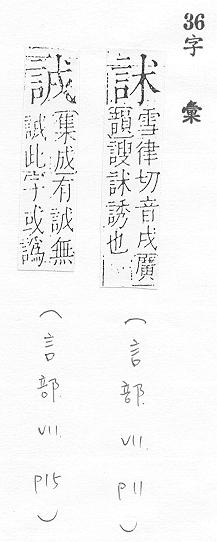 36
字彙
訹
雪律切音戌廣
韻謏訹誘也
(言部 VII. p11)
集成有誠無
此字或譌
(言部 VII. p15)